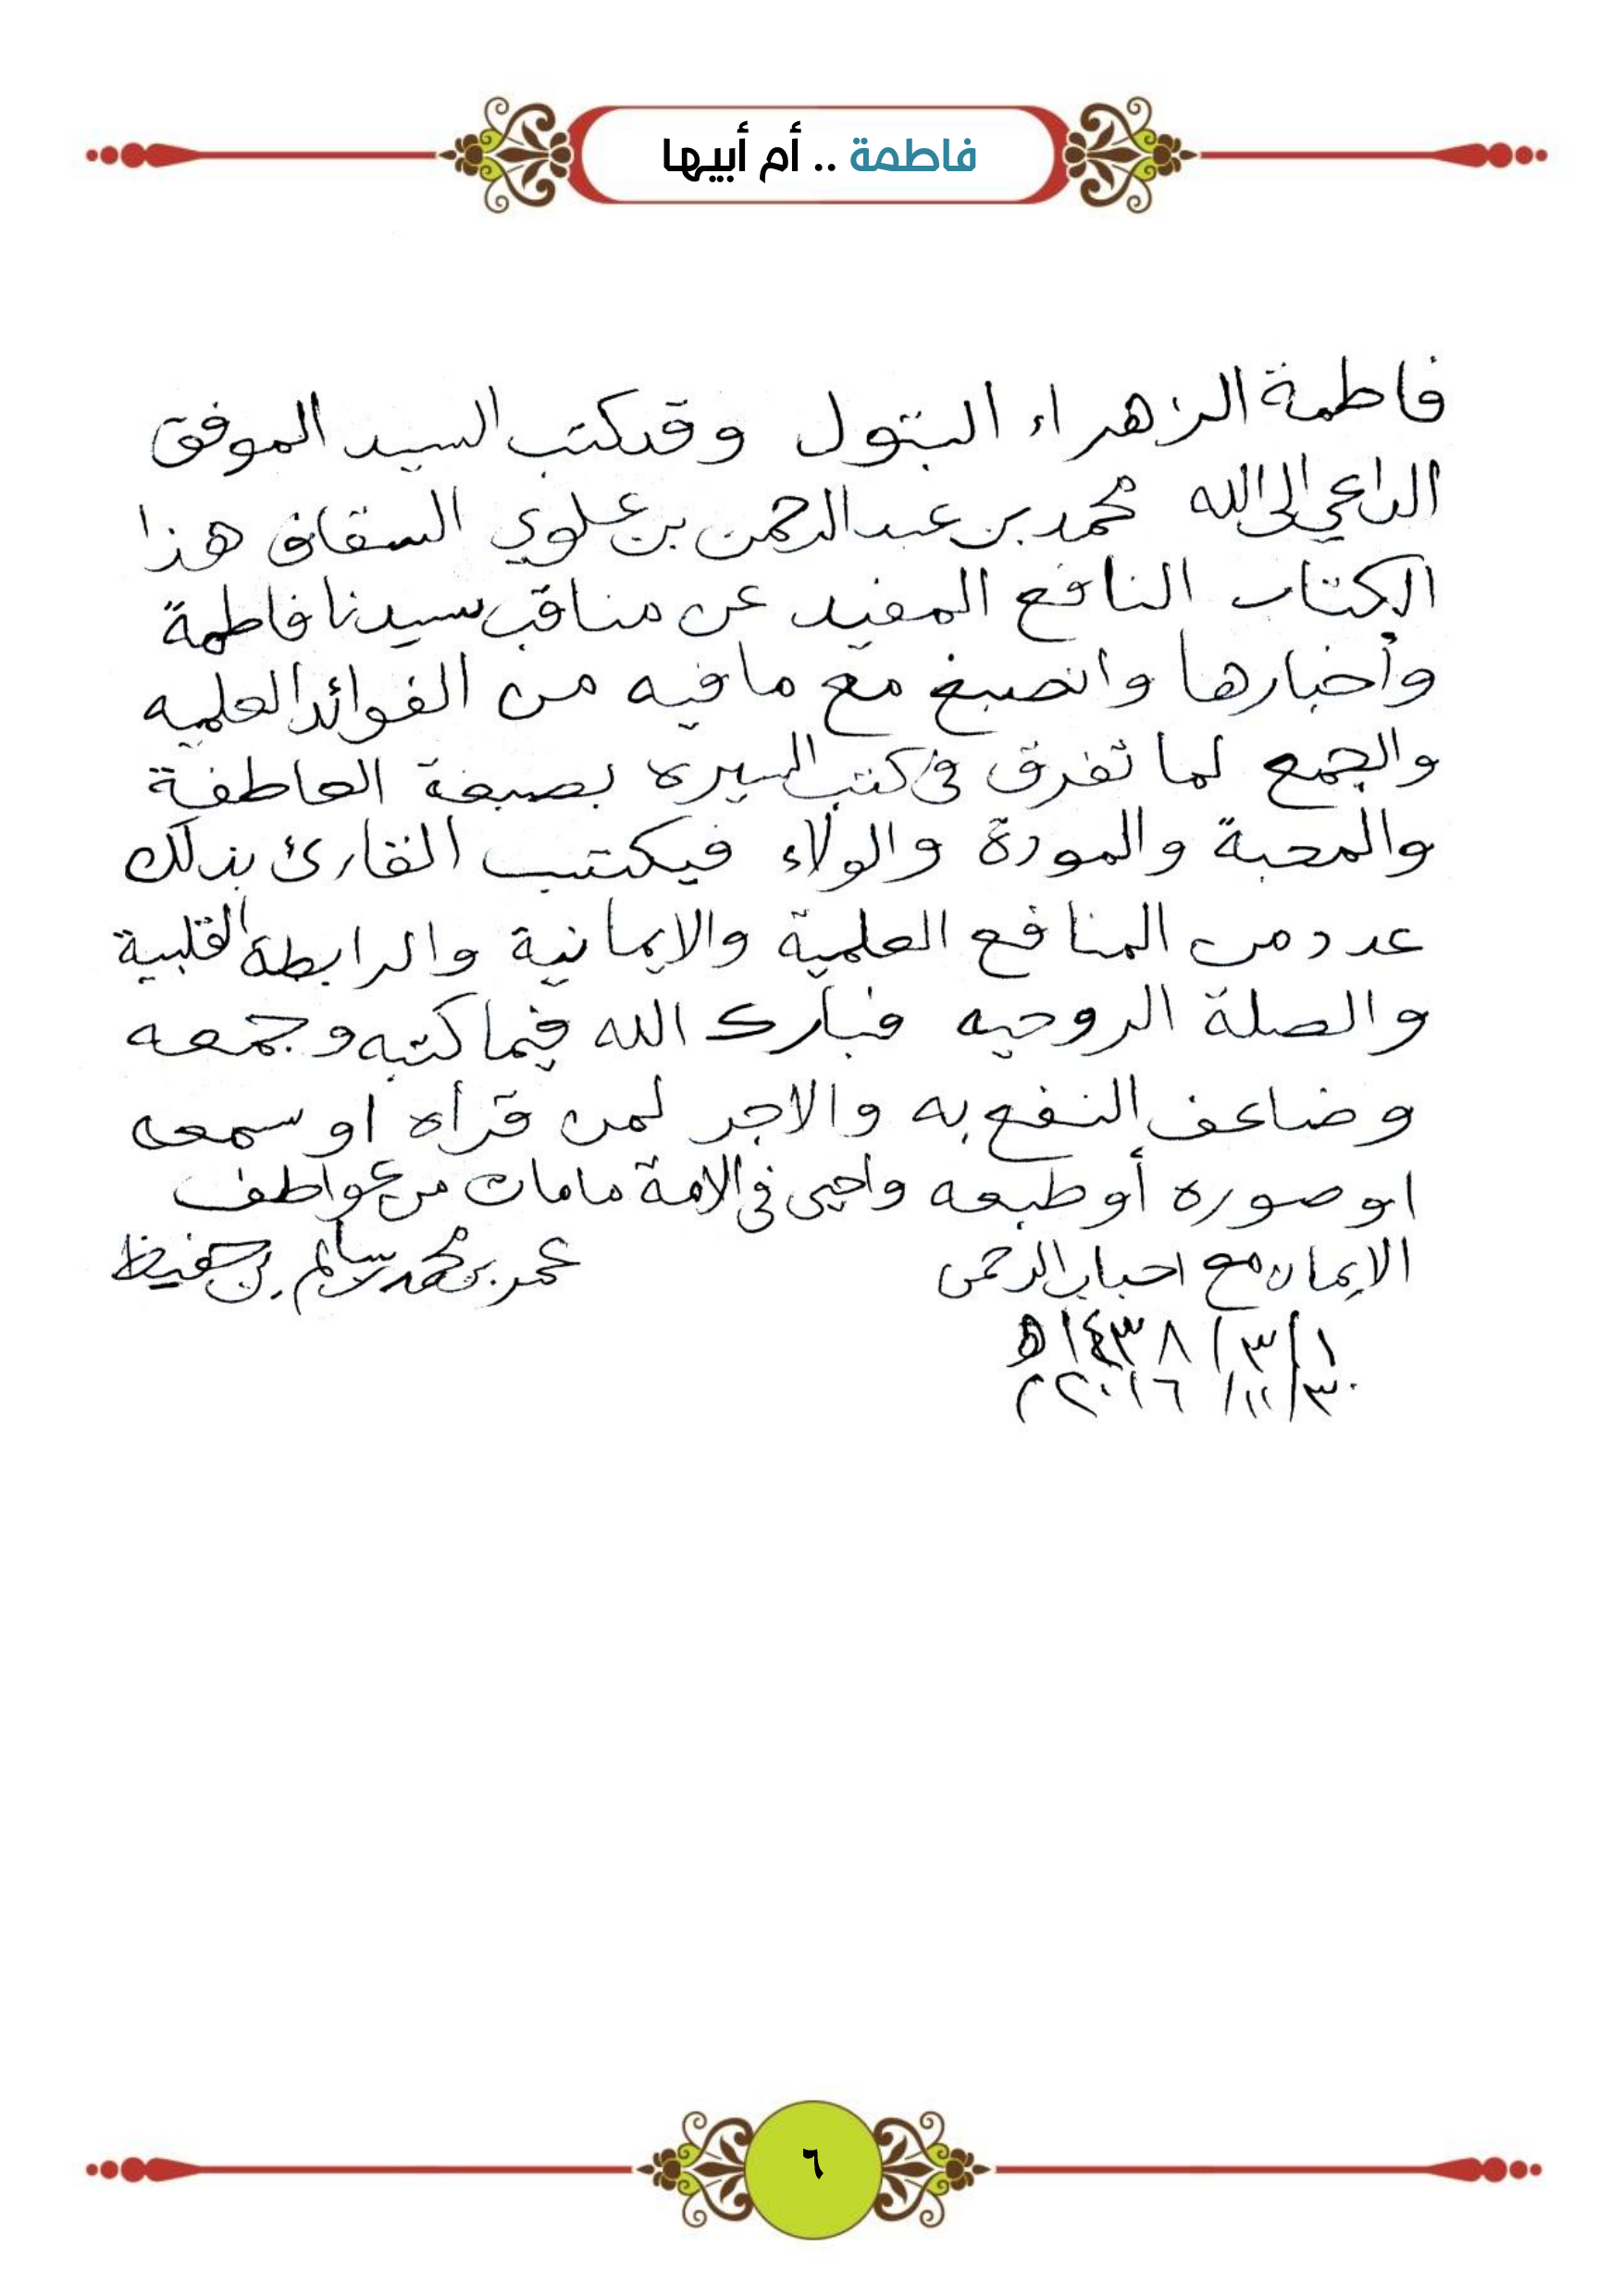 فاطمة .. أم أبيها
فاطمة الزهراء البتول وقد كتب السيد الموفق
الداعي إلى الله محمد بن عبدالرحمن بن علوي السقاف هذا
الكتاب النافع المفيد عن مناقب سيدتنا فاطمة
وأخبارها وانصبغ مع ما فيه من الفوائد العلميه
والجمع لما تفرق في كتب السيره بصبغة العاطفة
والمحبة والمودة والولاء فيكتسب القارئ بذلك
عدد من المنافع العلمية والايمانية والرابطة القلبية
والصلة الروحيه فبارك الله فيما كتبه وجمعه
وضاعف النفع به والاجر لمن قرأه او سمعه
او صوره أو طبعه واحيى في الامة مامات من عواطف
الايمان مع احباب الرحمن عمر بن محمد بن سالم بن حفيظ
١/٣/١٤٣٨ ه
٣٠/١١/٢٠١٦ م
٦